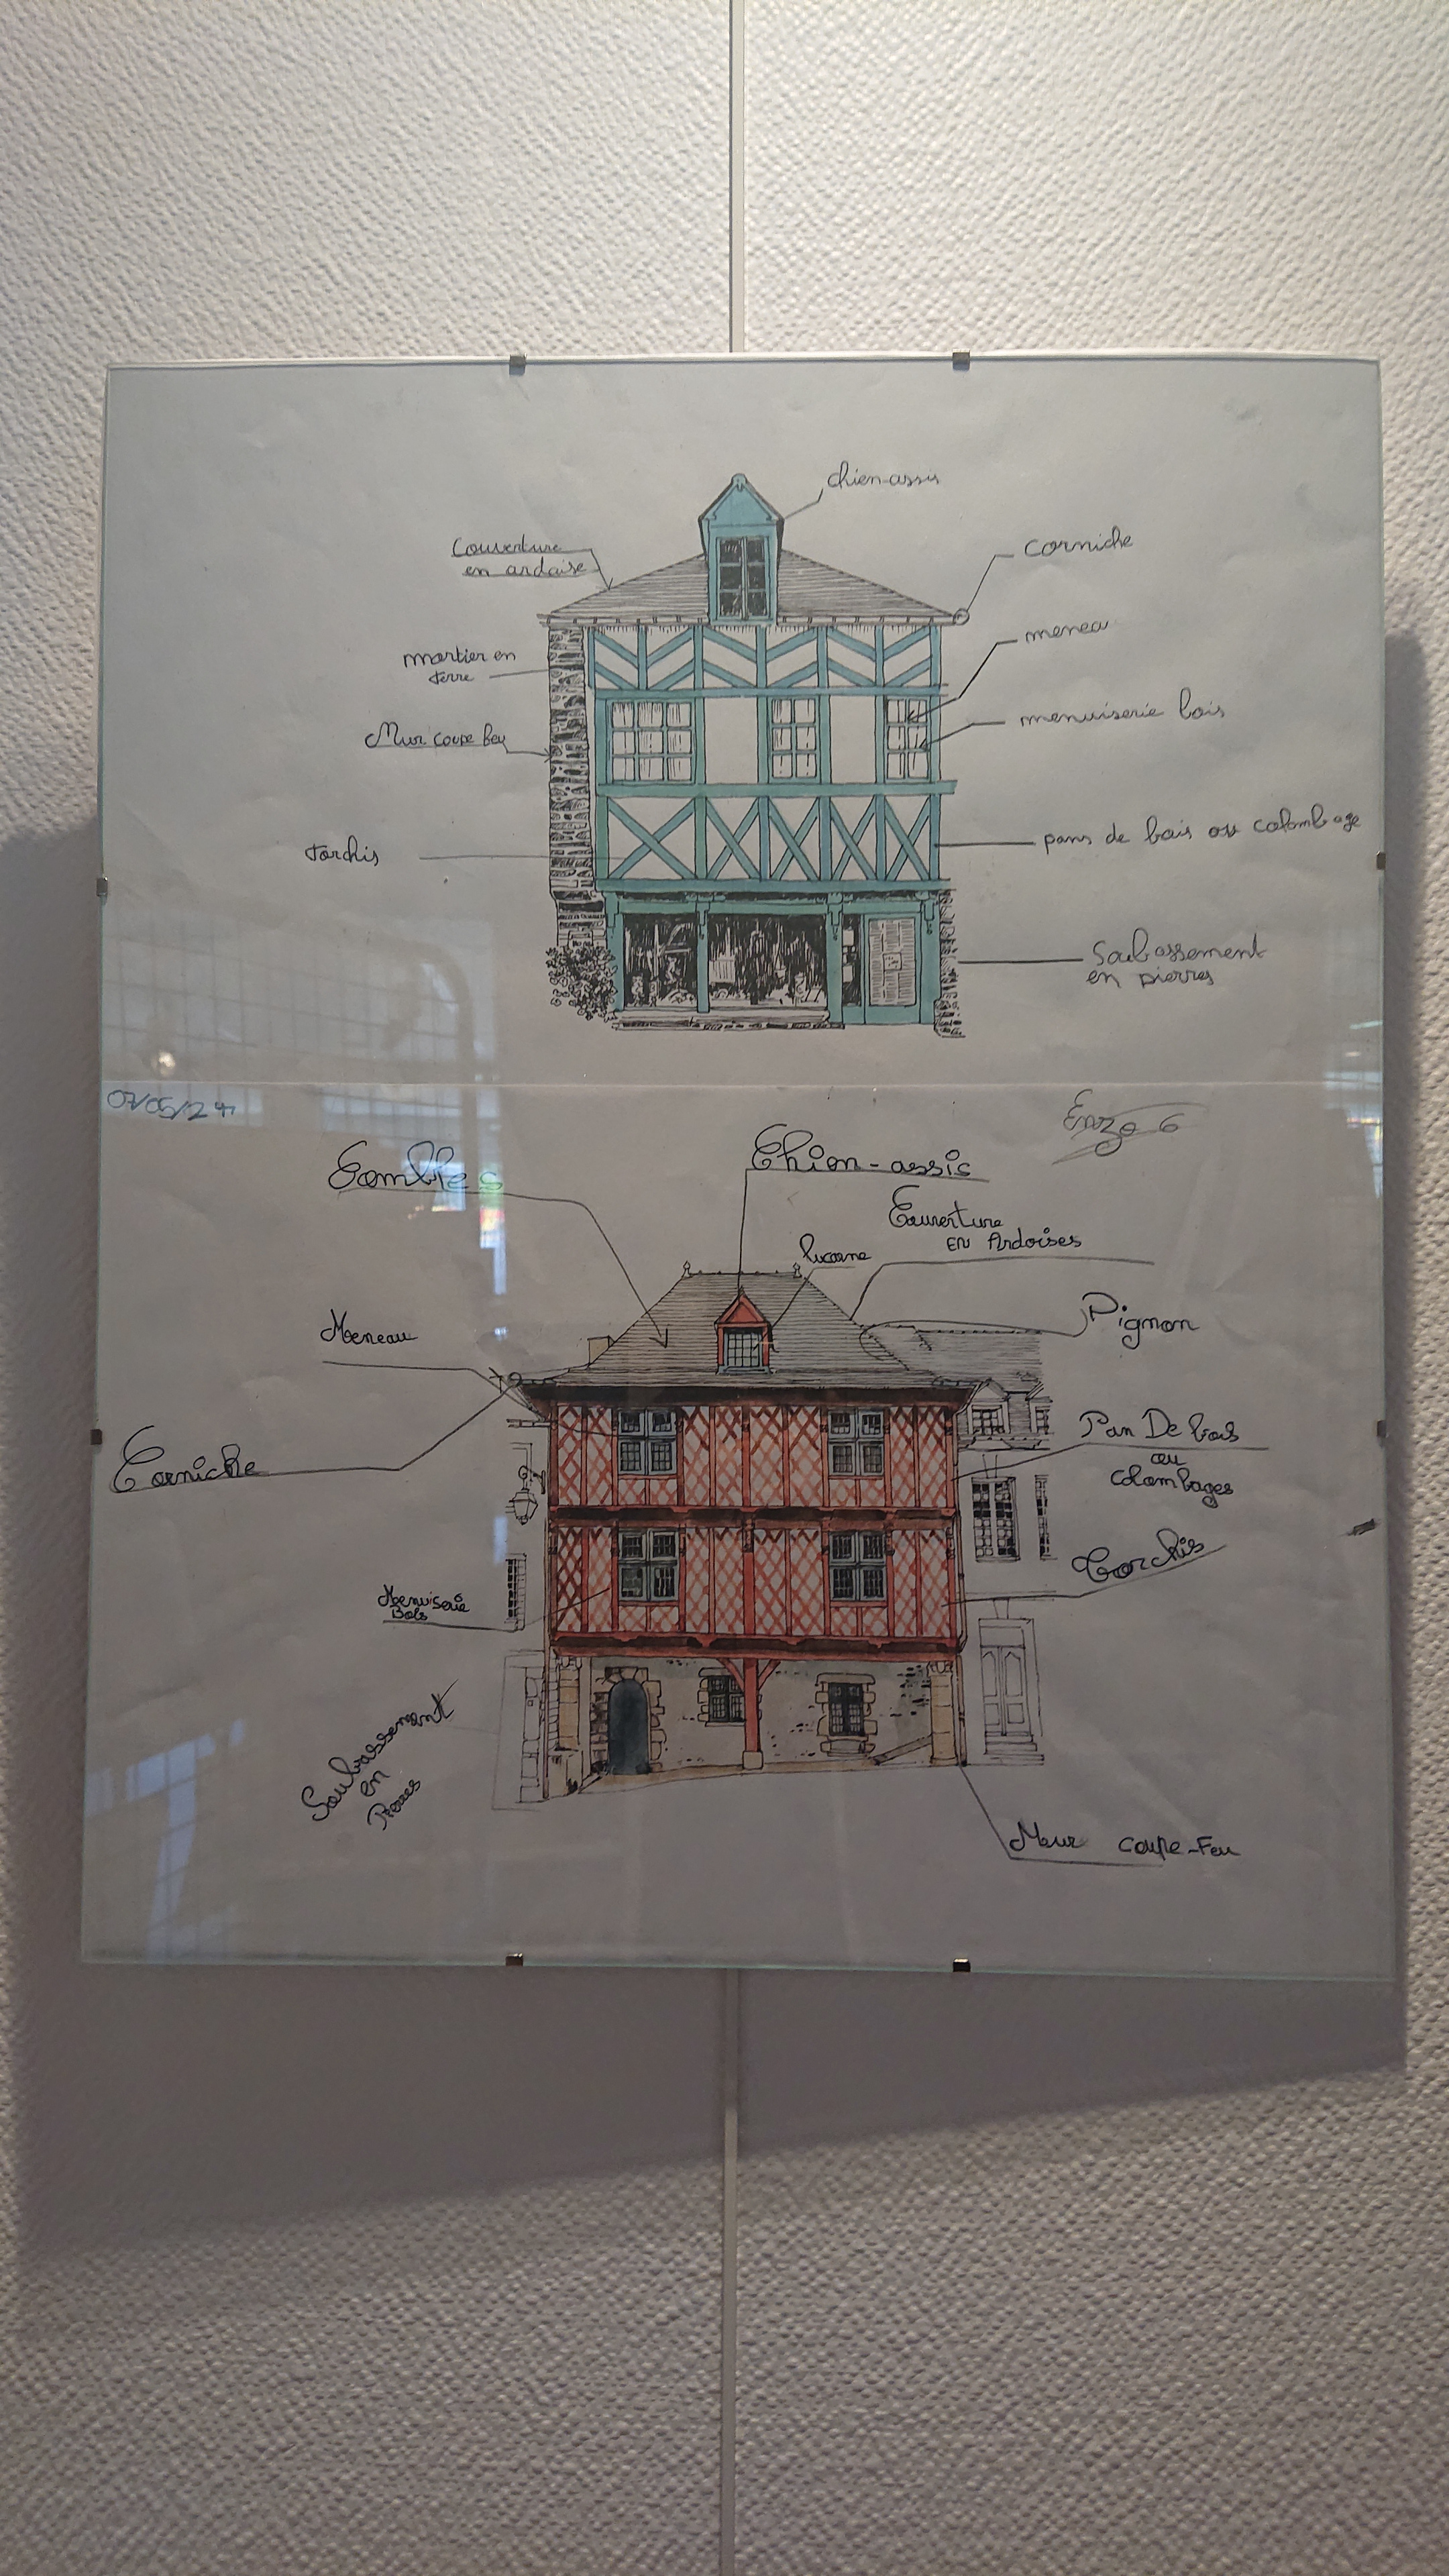 chien-assis
couverture
en ardoise
corniche
meneau
mortier en
terre
menuiserie bois
Mur coupe feu
pans de bois ou colombage
torchis
Soubassement
en pierres
07/05/24
Enzo G
Combles
Chien-assis
Couverture
EN Ardoises
lucarne
Pignon
Meneau
Pan De bois
ou
colombages
Corniche
Torchis
Menuiserie
Bois
Soubassement
en
Pierres
Mur coupe-Feu